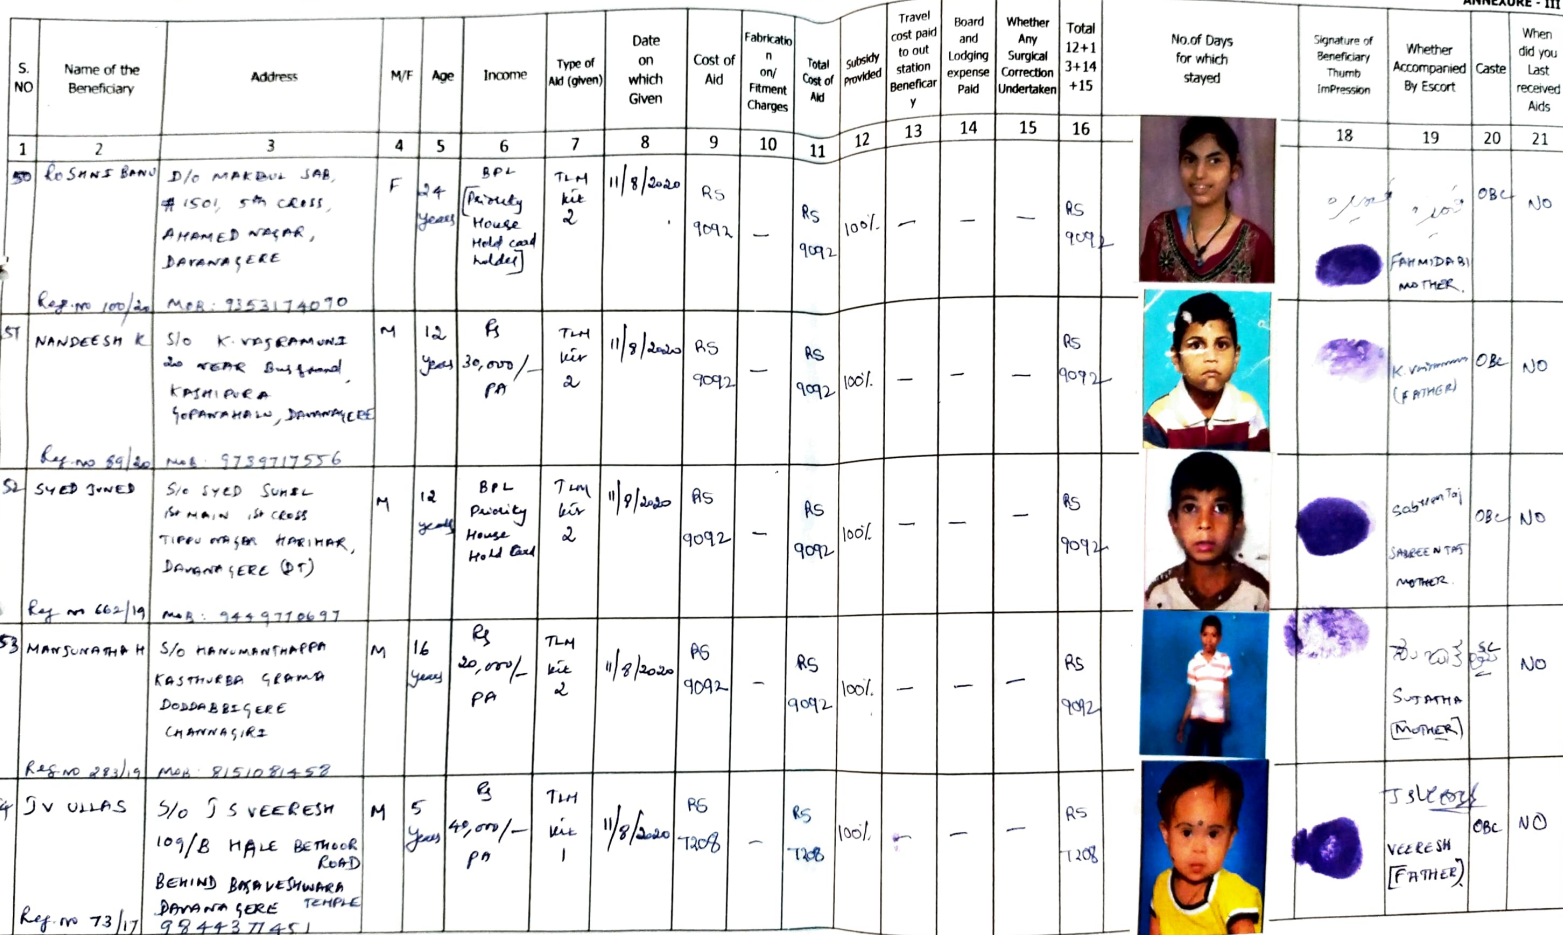 ANNEXURE - III
S. NO
Name of the Beneficiary
Address
M/F
Age
Income
Type of Aid (given)
Date on which Given
Cost of Aid
Fabricatio n on/ Fitment Charges
Total Cost of Aid
Subsidy Provided
Travel cost paid to out station Beneficar y
Board and Lodging expense Paid
Whether Any Surgical Correction Undertaken
Total 12+1 3+14 +15
No.of Days for which stayed
Signature of Beneficiary Thumb ImPression
Whether Accompanied By Escort
Caste
When did you Last received Aids
1 2 3 4 5 6 7 8 9 10 11 12 13 14 15 16 18 19 20 21
50 ROSHNI BANU
Reg.no 100/20
D/o MAKBUL SAB,
# 1501, 5th CROSS,
AHAMED NAGAR,
DAVANAGERE
MOB: 9353174090
F
24 years
BPL
[Priority
House
Hold card
holder]
TLM
kit
2
11/8/2020
RS
9092
—
RS
9092
100%
—
—
—
RS
9092
FAHMIDABI
MOTHER.
OBC
NO
51 NANDEESH K
Reg.no 89/20
S/o K. VAJRAMUNI
20 NEAR Busstand
KASHIPURA
GOPANAHALU, DAVANAGERE
MOB: 9739717556
M
12 years
Rs
30,000/-
PA
TLM
kit
2
11/8/2020
RS
9092
—
RS
9092
100%
—
—
—
RS
9092
(FATHER)
OBC
NO
52 SYED JUNED
Reg no 662/19
S/o SYED SUHIL
1st MAIN 1st CROSS
TIPPU NAGAR HARIHAR,
DAVANAGERE (DT)
MOB: 9449770697
M
12 years
BPL
Priority
House
Hold Card
TLM
kit
2
11/8/2020
RS
9092
—
RS
9092
100%
—
—
—
RS
9092
Sabreen Taj
SABREEN TAJ
MOTHER.
OBC
NO
53 MANJUNATHA H
Reg no 283/19
S/o HANUMANTHAPPA
KASTHURBA GRAMA
DODDABBIGERE
CHANNAGIRI
MOB: 8151081458
M
16 years
Rs
20,000/-
PA
TLM
kit
2
11/8/2020
RS
9092
—
RS
9092
100%
—
—
—
RS
9092
SUJATHA
[MOTHER]
SC
NO
4 J V ULLAS
Reg.no 73/17
S/o J S VEERESH
109/B HALE BETHOOR
ROAD
BEHIND BASAVESHWARA
TEMPLE
DAVANAGERE
9844371451
M
5 years
Rs
40,000/-
PA
TLM
kit
1
11/8/2020
RS
7208
—
RS
7208
100%
—
—
—
RS
7208
VEERESH
[FATHER]
OBC
NO